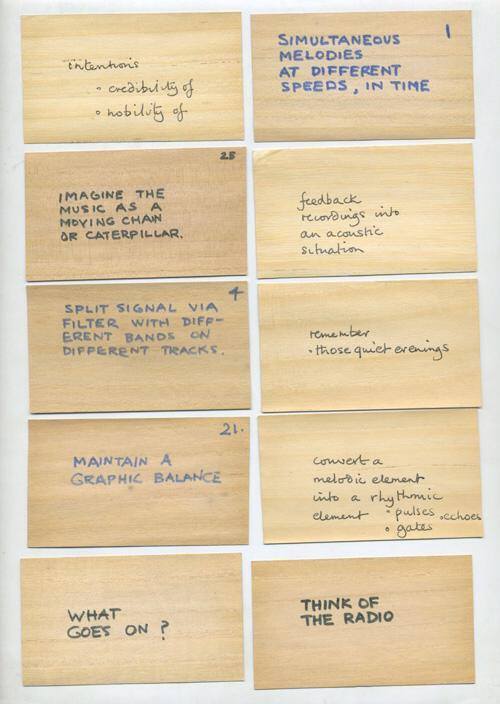 intentions
• credibility of
• nobility of
1
SIMULTANEOUS
MELODIES
AT DIFFERENT
SPEEDS, IN TIME
25
IMAGINE THE
MUSIC AS A
MOVING CHAIN
OR CATERPILLAR.
feedback
recordings into
an acoustic
situation
4
SPLIT SIGNAL VIA
FILTER WITH DIFF-
ERENT BANDS ON
DIFFERENT TRACKS.
remember
• those quiet evenings
21.
MAINTAIN A
GRAPHIC BALANCE
convert a
melodic element
into a rhythmic
element • pulses • echoes
• gates
WHAT
GOES ON?
THINK OF
THE RADIO